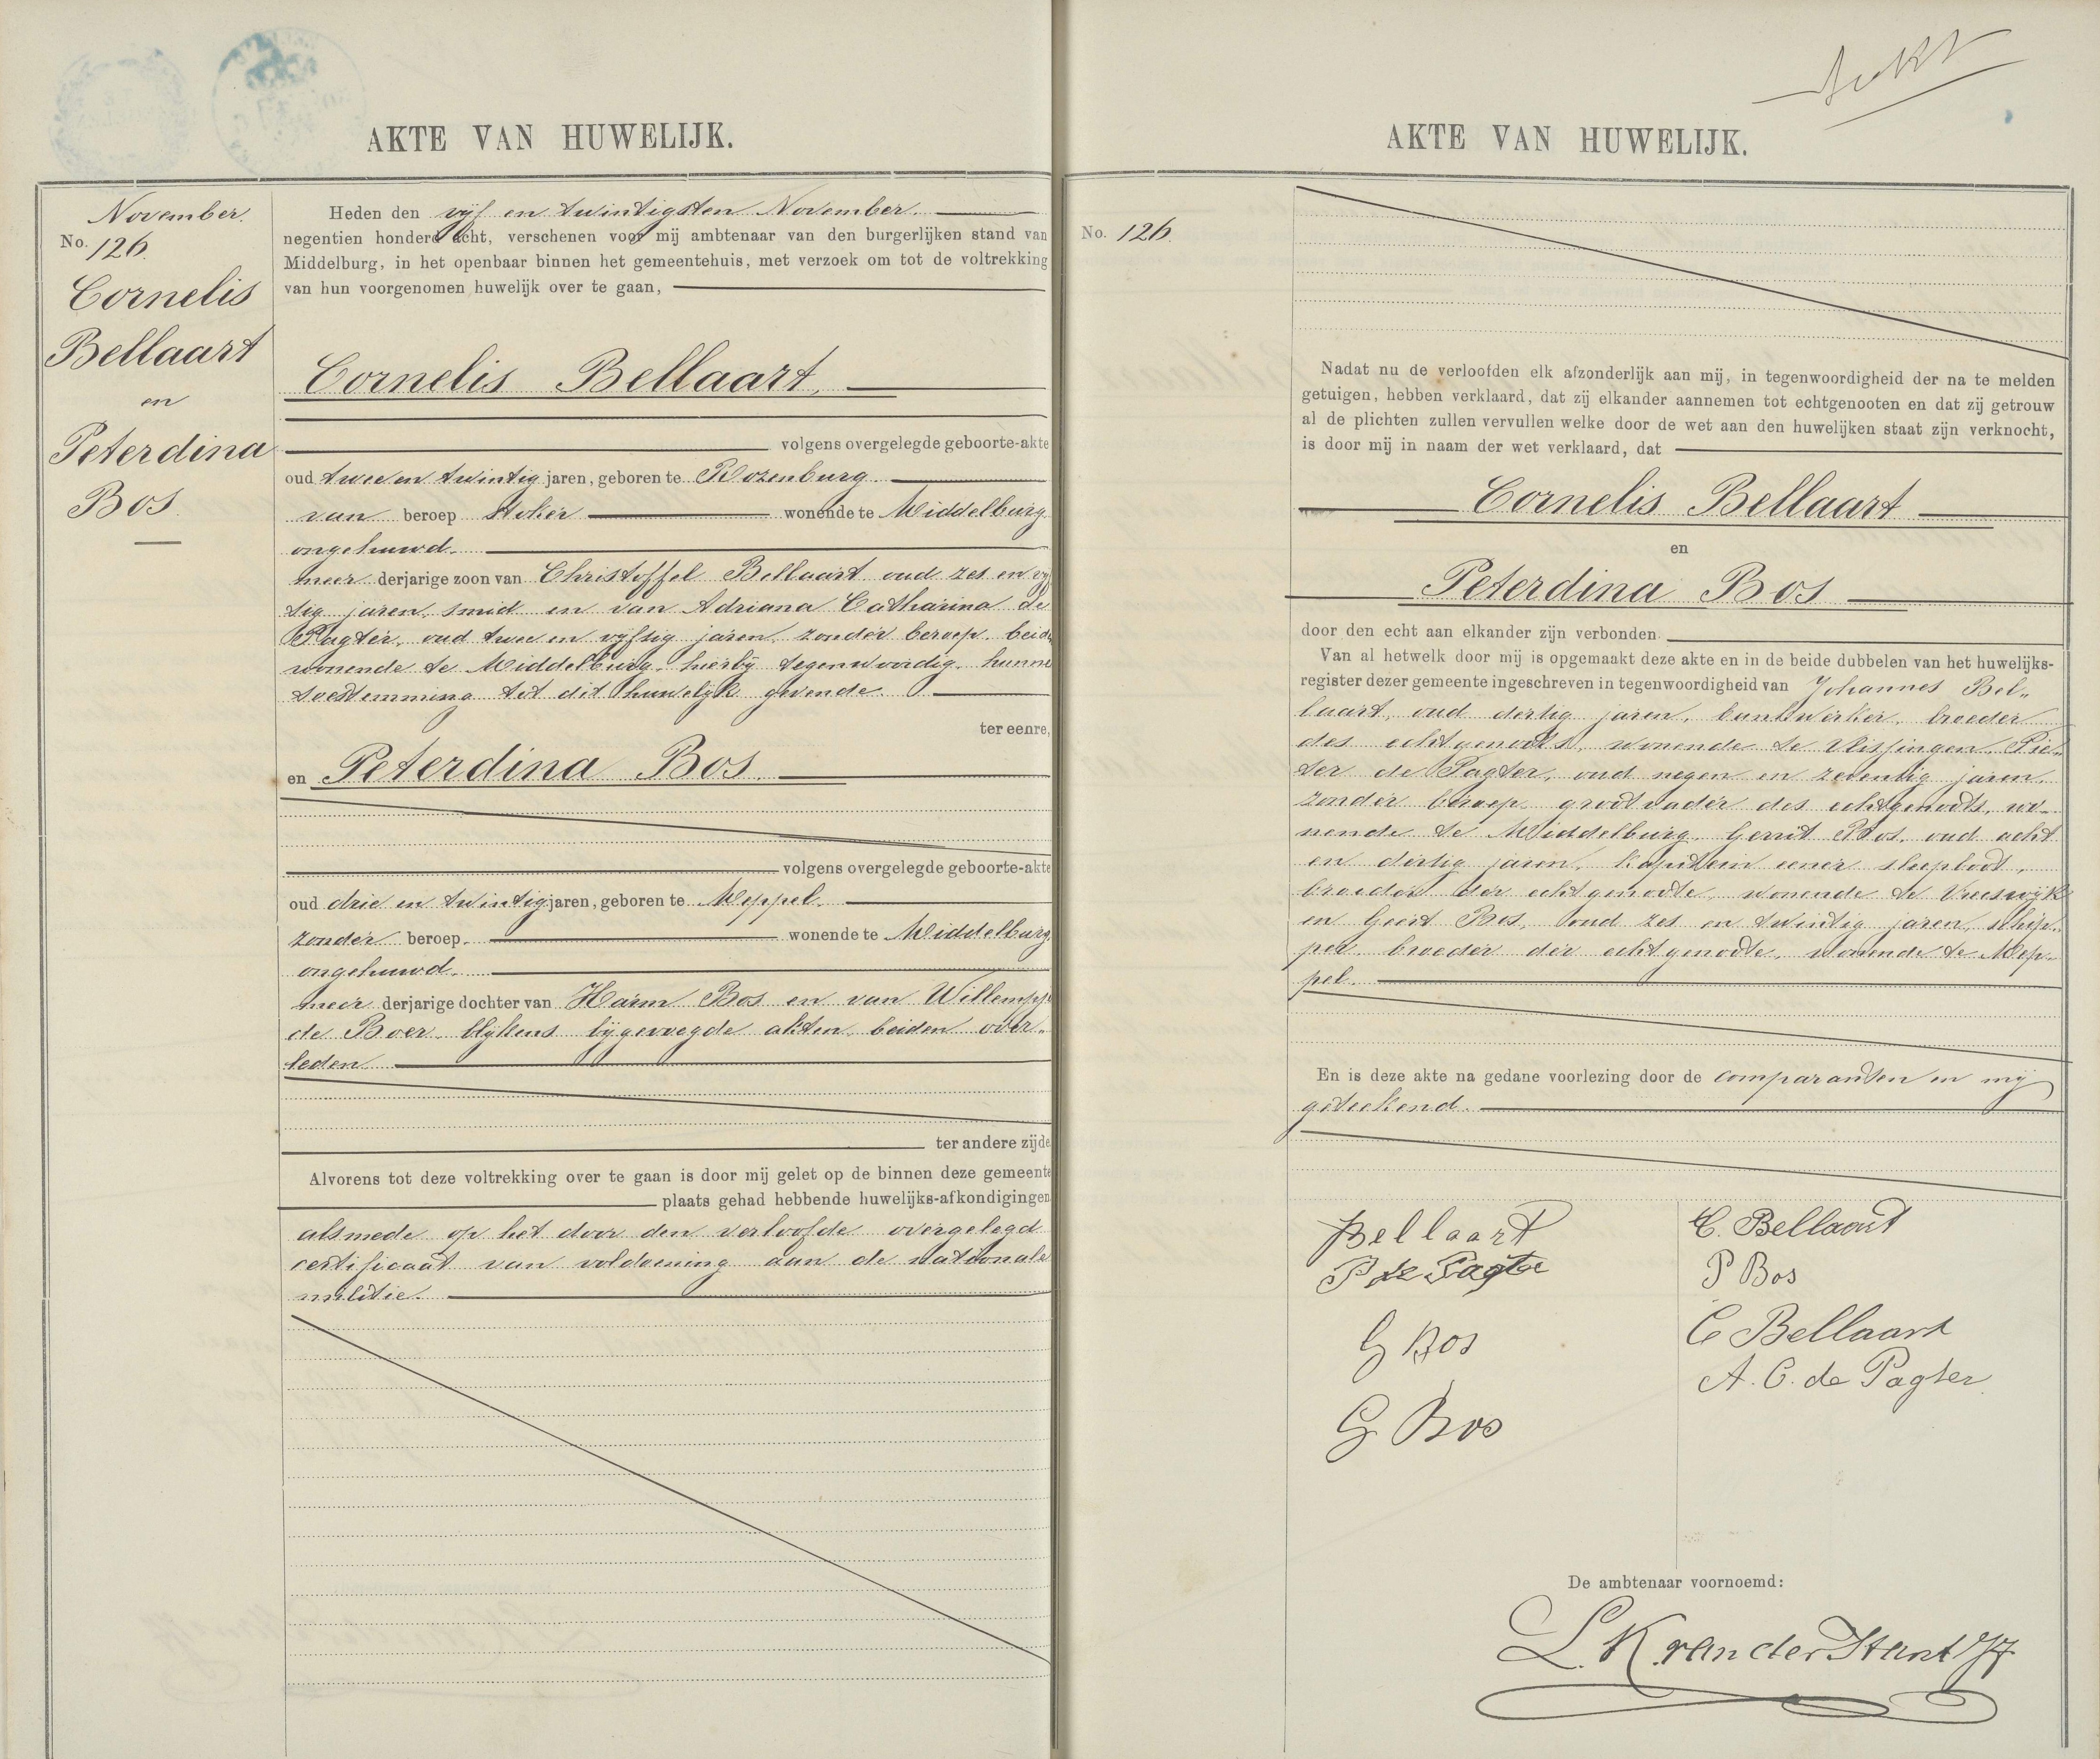 AKTE VAN HUWELIJK.
November.
No. 126.
Cornelis
Bellaart
en
Peterdina
Bos.
Heden den vijf en twintigsten November.
negentien honderd acht, verschenen voor mij ambtenaar van den burgerlijken stand van
Middelburg, in het openbaar binnen het gemeentehuis, met verzoek om tot de voltrekking
van hun voorgenomen huwelijk over te gaan,
Cornelis Bellaart,
volgens overgelegde geboorte-akte
oud twee en twintig jaren, geboren te Rozenburg
van beroep stoker wonende te Middelburg
ongehuwd.
meer derjarige zoon van Christoffel Bellaart oud zes en vijf
tig jaren, smid en van Adriana Catharina de
Pagter, oud twee en vijftig jaren, zonder beroep, beide
wonende te Middelburg hierbij tegenwoordig, hunne
toestemming tot dit huwelijk gevende
ter eenre,
en Peterdina Bos.
volgens overgelegde geboorte-akte
oud drie en twintig jaren, geboren te Meppel.
zonder beroep. wonende te Middelburg
ongehuwd.
meer derjarige dochter van Harm Bos en van Willempje
de Boer, blijkens bijgevoegde akten, beiden over-
leden
ter andere zijde
Alvorens tot deze voltrekking over te gaan is door mij gelet op de binnen deze gemeente
plaats gehad hebbende huwelijks-afkondigingen
alsmede op het door den verloofde overgelegd
certificaat van voldoening aan de nationale
militie.
AKTE VAN HUWELIJK.
No. 126.
Nadat nu de verloofden elk afzonderlijk aan mij, in tegenwoordigheid der na te melden
getuigen, hebben verklaard, dat zij elkander aannemen tot echtgenooten en dat zij getrouw
al de plichten zullen vervullen welke door de wet aan den huwelijken staat zijn verknocht,
is door mij in naam der wet verklaard, dat
Cornelis Bellaart
en
Peterdina Bos
door den echt aan elkander zijn verbonden.
Van al hetwelk door mij is opgemaakt deze akte en in de beide dubbelen van het huwelijks-
register dezer gemeente ingeschreven in tegenwoordigheid van Johannes Bel-
laart, oud dertig jaren, bankwerker, broeder
des echtgenoots, wonende te Vlissingen, Pie-
ter de Pagter, oud negen en zeventig jaren,
zonder beroep, grootvader des echtgenoots, wo-
nende te Middelburg, Gerrit Bos, oud acht
en dertig jaren, kapitein eener sleepboot,
broeder der echtgenoote, wonende te Vreeswijk
en Geert Bos, oud zes en twintig jaren, schip-
per, broeder der echtgenoote, wonende te Mep-
pel.
En is deze akte na gedane voorlezing door de comparanten en mij
geteekend.
Bellaart
P de Pagter
G Bos
G Bos
C. Bellaart
P Bos
C Bellaart
A. C. de Pagter
De ambtenaar voornoemd: